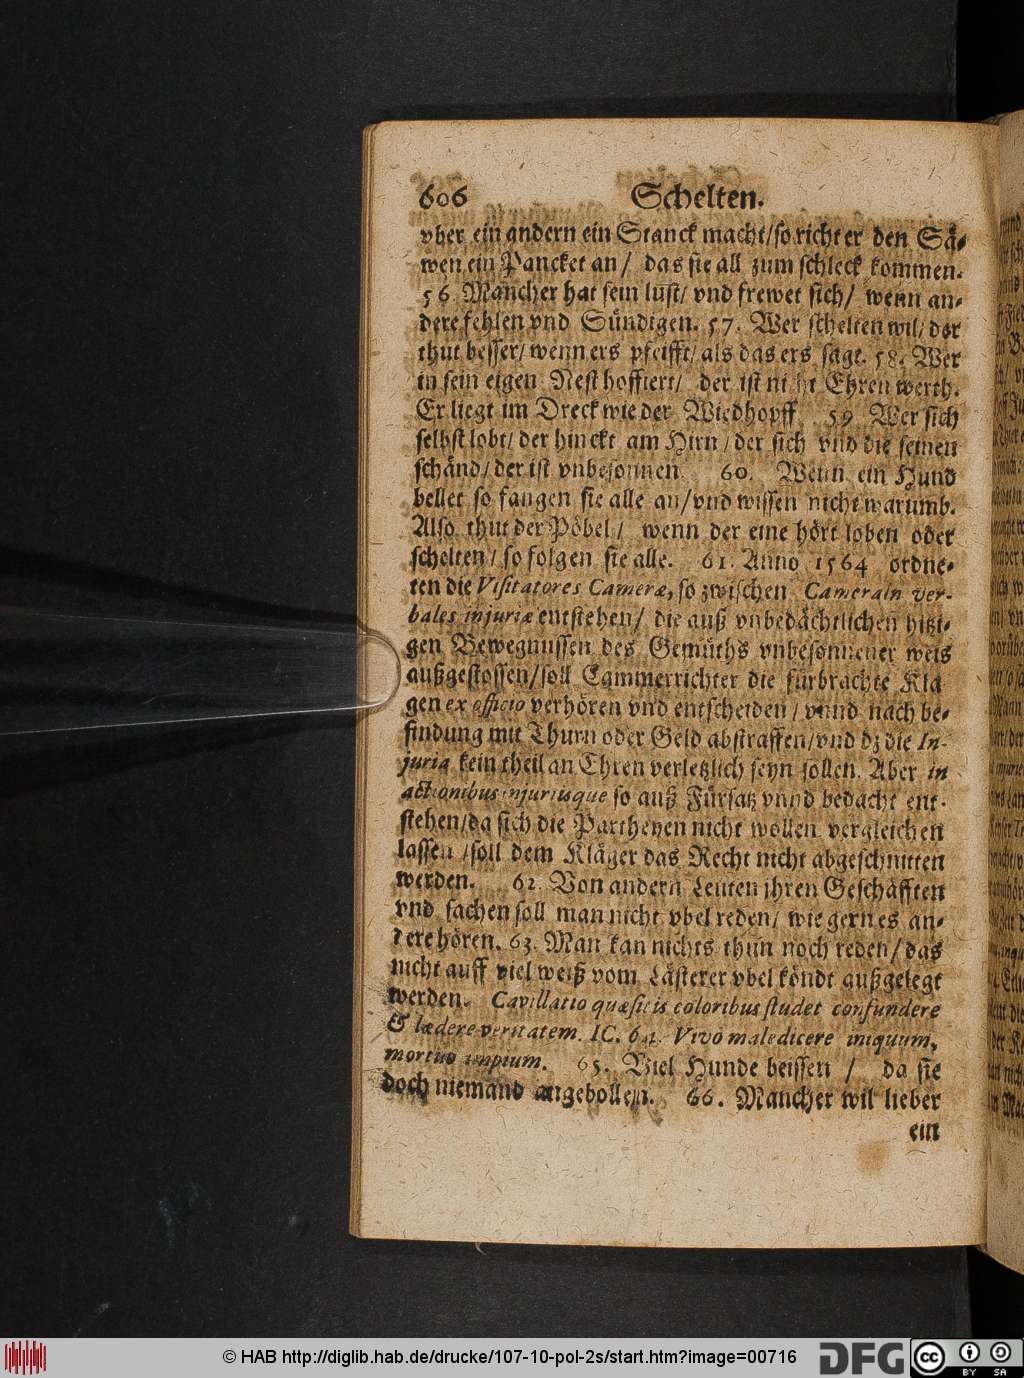 606 Schelten.
vber ein andern ein Stanck macht/ so richt er den Sä-
wen ein Pancket an/ das sie all zum schleck kommen.
56. Mancher hat sein lust/ vnd frewet sich/ wenn an-
dere fehlen vnd Sündigen. 57. Wer schelten wil/ der
thut besser/ wenn ers pfeifft/ als das ers sagt. 58. Wer
in sein eigen Nest hoffiert/ der ist nicht Ehren werth.
Er liegt im Dreck wie der Wiedhopff. 59. Wer sich
selbst lobt/ der hinckt am Hirn/ der sich vnd die seinen
schänd/ der ist vnbesonnen. 60. Wenn ein Hund
bellet so fangen sie alle an/ vnd wissen nicht warumb.
Also thut der Pöbel/ wenn der eine hört loben oder
schelten/ so folgen sie alle. 61. Anno 1564 ordne-
ten die Visitatores Cameræ, so zwischen Cameraln ver-
bales injuriæ entstehen/ die auß vnbedächtlichen hitzi-
gen Bewegnussen des Gemüths vnbesonnener weis
außgestossen/ soll Cammerrichter die fürbrachte Kla
gen ex officio verhören vnd entscheiden/ vnnd nach be-
findung mit Thurn oder Geld abstraffen/ vnd dz die In-
juria kein theil an Ehren verletzlich seyn sollen. Aber in
actionibus injuriisque so auß Fürsatz vnnd bedacht ent-
stehen/ da sich die Partheyen nicht wollen vergleichen
lassen/ soll dem Kläger das Recht nicht abgeschnitten
werden. 62. Von andern Leuten ihren Geschäfften
vnd sachen soll man nicht vbel reden/ wie gern es an-
dere hören. 63. Man kan nichts thun noch reden/ das
nicht auff viel weiß vom Lästerer vbel köndt außgelegt
werden. Cavillatio quæsitis coloribus studet confundere
& lædere veritatem. IC. 64. Vivo maledicere iniquum,
mortuo impium. 65. Viel Hunde beissen/ da sie
doch niemand angebollen. 66. Mancher wil lieber
ein
© HAB http://diglib.hab.de/drucke/107-10-pol-2s/start.htm?image=00716
DFG
cc BY SA